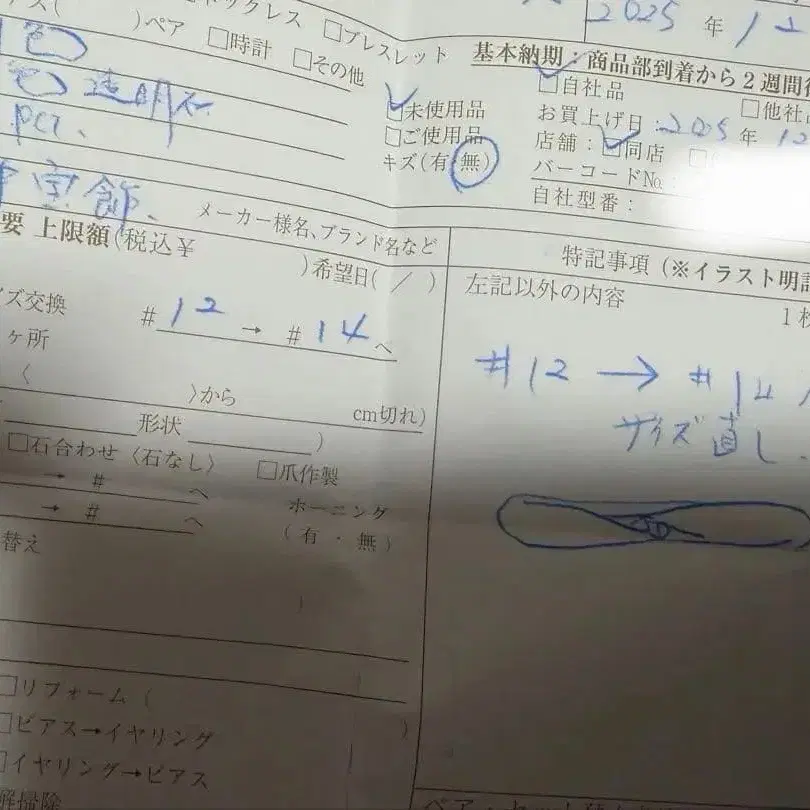 ネックレス □ブレスレット
)ペア □時計 □その他
2025 年 12
基本納期：商品部到着から2週間
色
色 透明石
pcı、
宝飾、
□未使用品
□ご使用品
キズ(有・無)
□自社品 □他社
お買上げ日：2025 年 12
店舗：□同店
バーコードNo.：
自社型番：
メーカー様名、ブランド名など
要 上限額(税込¥ )希望日( / )
イズ交換 # 12 → # 14 へ
ヶ所
〈 〉から cm切れ)
形状 )
□石合わせ〈石なし〉 □爪作製
→ # へ
→ # へ
ホーニング
(有・無)
替え
□リフォーム( )
□ピアス→イヤリング
□イヤリング→ピアス
解掃除
特記事項(※イラスト明記
左記以外の内容
1枚
#12 → #14
サイズ直し、